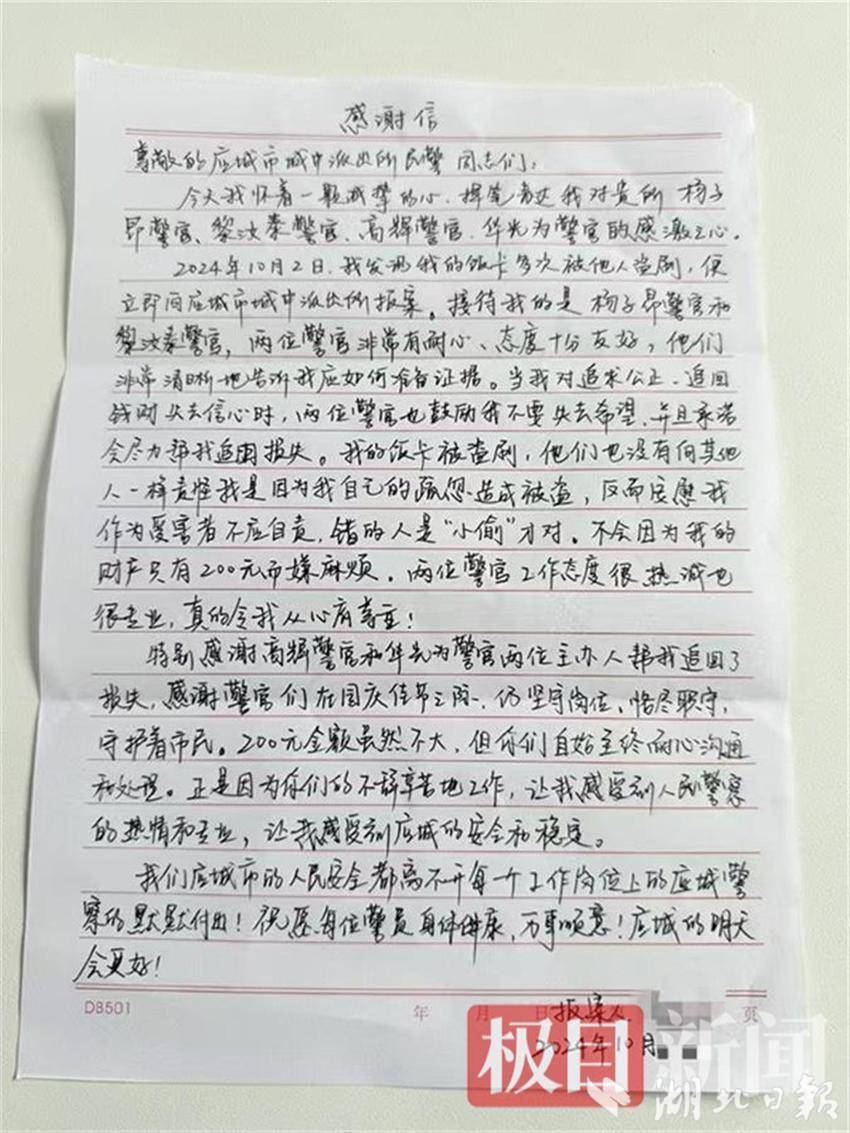 感谢信
尊敬的应城市城中派出所民警同志们：
今天我怀着一颗诚挚的心，挥笔表达我对贵所杨子
昂警官、黎汝泰警官、高辉警官、华先为警官的感激之心。
2024年10月2日，我发现我的饭卡多次被他人盗刷，便
立即向应城市城中派出所报案。接待我的是杨子昂警官和
黎汝泰警官，两位警官非常有耐心、态度十分友好，他们
非常清晰地告诉我应如何准备证据。当我对追求公正、追回
钱财失去信心时，两位警官也鼓励我不要失去希望，并且承诺
会尽力帮我追回损失。我的饭卡被盗刷，他们也没有向其他
人一样责怪我是因为我自己的疏忽造成被盗，反而安慰我
作为受害者不应自责，错的人是“小偷”才对。不会因为我的
财产只有200元而嫌麻烦。两位警官工作态度很热诚也
很专业，真的令我从心底尊重！
特别感谢高辉警官和华先为警官两位主办人帮我追回了
损失，感谢警官们在国庆佳节之际，仍坚守岗位、恪尽职守，
守护着市民。200元金额虽然不大，但你们自始至终耐心沟通
和处理。正是因为你们的不辞辛苦地工作，让我感受到人民警察
的热情和专业，让我感受到应城的安全和稳定。
我们应城市的人民安全都离不开每一个工作岗位上的应城警
察的默默付出！祝愿每位警员身体健康，万事顺意！应城的明天
会更好！
DB501 年 月 日 页
报案人
2024年10月
极目新闻
湖北日报